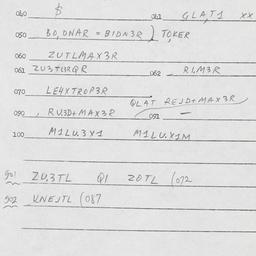 040 $ 041 GLAT1 xx
050 BO,ONAR = BIDN3R ) TOKER
060 ZUTLMAX3R
061 062 RLM3R
070 LE4XTROP3R
QLAT REJD+MAX3R
090 , RU3D+MAX3R 091 —
100 M1LU.3X1 M1LU.X1M
901 ZU,3TL Q1 ZOTL (072
902 VNEJTL (087